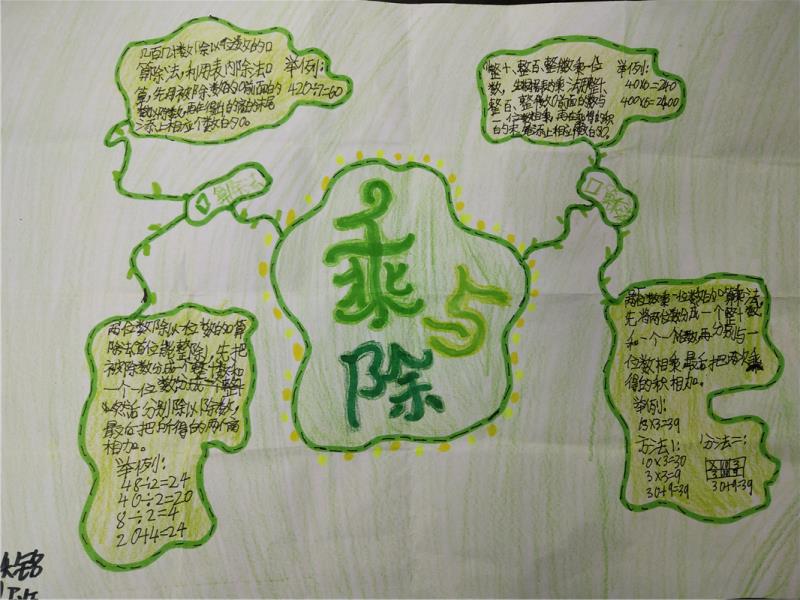 几百几十数除以一位数的口
算除法,利用表内除法口
算,先用被除数0前面的
数以除数,再在得的商的末尾
添上相应个数的0。
举例:
420÷7=60
整十、整百、整千数乘一位
数,
整百、整千数0前面的数与
一位数相乘,再在乘得的积
的末尾添上相应个数的0。
举例:
40×6=240
400×6=2400
口算除法
口算乘法
乘
与
除
两位数除以一位数的口算
除法首位能整除,先把
被除数分成一个整十数和
一个一位数
然后分别除以除数,
最后把所得的两个商
相加。
举例:
48÷2=24
40÷2=20
8÷2=4
20+4=24
两位数乘一位数的口算乘法
先将两位数分成一个整十数
和一个一位数,再分别与一
位数相乘,最后把两次乘
得的积相加。
举例:
13×3=39
方法1:
10×3=30
3×3=9
30+9=39
方法二:
X 10 3
3 30 9
30+9=39